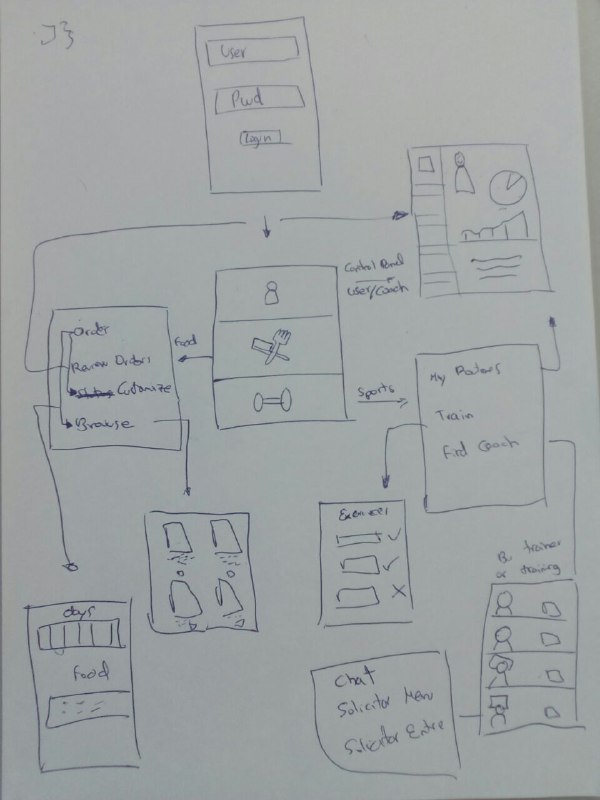 User
Pwd
Login
Control Panel
User/Coach
Food
Order
Review Orders
Cutomize
Browse
Sports
My Routines
Train
Find Coach
Exercices
By trainer
or training
days
food
Chat
Solicitar Menu
Solicitar Entre